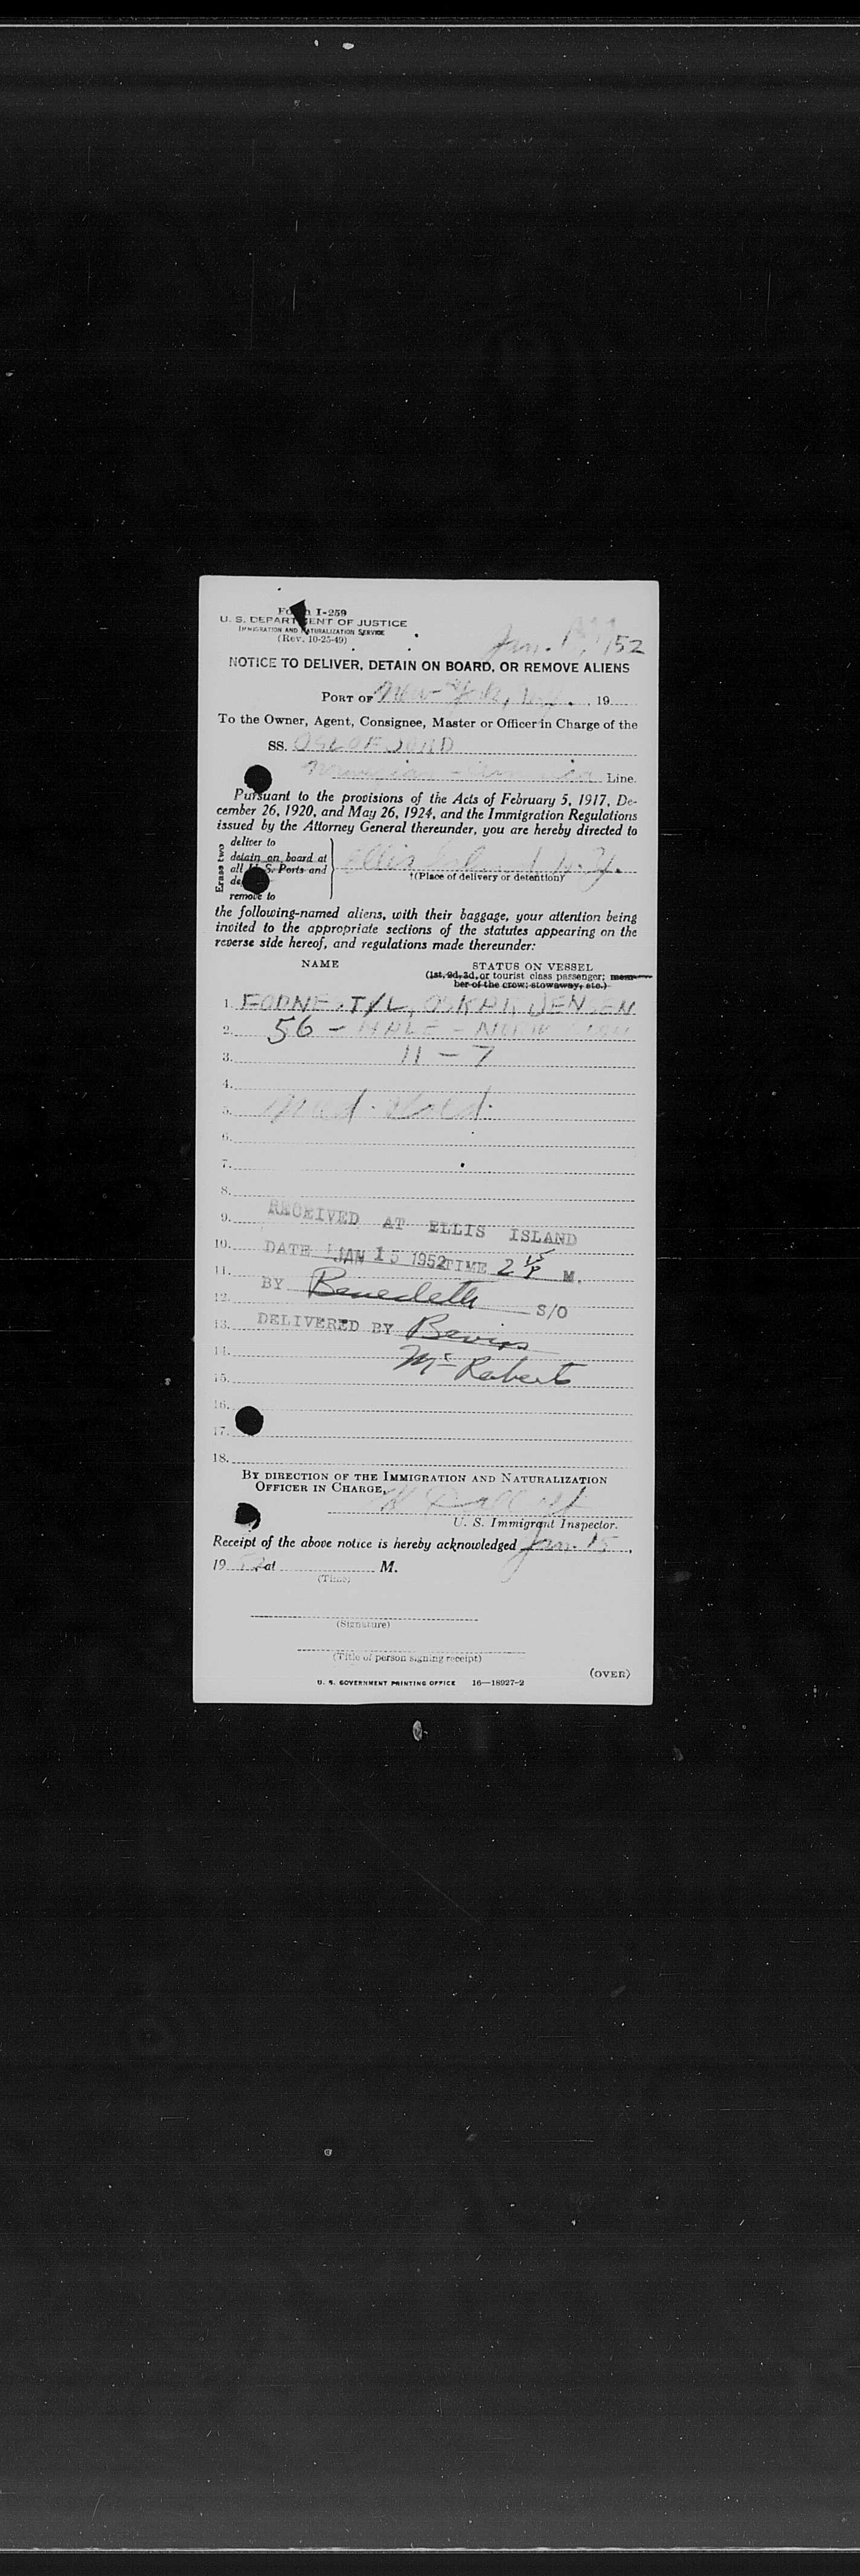 Form I-259
U. S. DEPARTMENT OF JUSTICE
IMMIGRATION AND NATURALIZATION SERVICE
(Rev. 10-25-49)
Jan. /52
NOTICE TO DELIVER, DETAIN ON BOARD, OR REMOVE ALIENS
PORT OF New York, , 19
To the Owner, Agent, Consignee, Master or Officer in Charge of the
SS. OSLOFJORD
Norwegian - America Line.
Pursuant to the provisions of the Acts of February 5, 1917, De-
cember 26, 1920, and May 26, 1924, and the Immigration Regulations
issued by the Attorney General thereunder, you are hereby directed to
Erase two
deliver to
detain on board at
all U. S. Ports and
remove to
Ellis Island N.Y.
†(Place of delivery or detention)
the following-named aliens, with their baggage, your attention being
invited to the appropriate sections of the statutes appearing on the
reverse side hereof, and regulations made thereunder:
NAME
STATUS ON VESSEL
(1st, 2d, 3d, or tourist class passenger; mem-
ber of the crew; stowaway, etc.)
1. OSKAR JENSEN
2. 56 - MALE -
3. 11 - 7
4.
5. Med. Hold.
6.
7.
8.
RECEIVED AT ELLIS ISLAND
9.
10. DATE JAN 15 1952 TIME 2 15 P M.
11.
BY S/O
12.
13. DELIVERED BY Bevins
14. McRoberts
15.
16.
17.
18.
BY DIRECTION OF THE IMMIGRATION AND NATURALIZATION
OFFICER IN CHARGE,
U. S. Immigrant Inspector.
Receipt of the above notice is hereby acknowledged Jan. 15,
19 52 at M.
(Time)
(Signature)
(Title of person signing receipt)
(OVER)
U. S. GOVERNMENT PRINTING OFFICE 16—18927-2